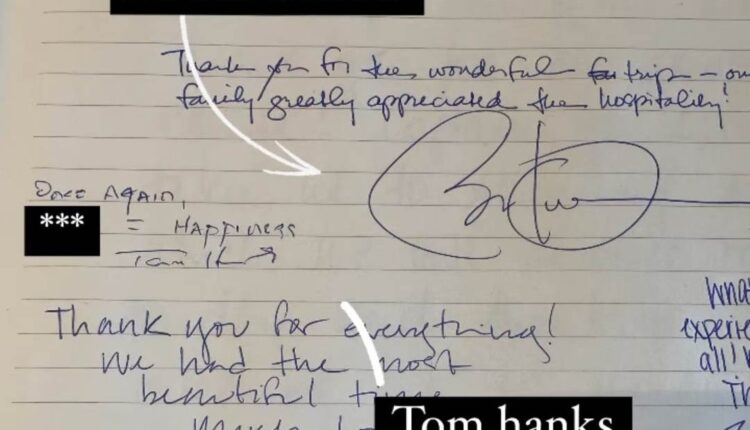 Thank you for the wonderful trip — our
family greatly appreciated the hospitality!
Once Again,
*** = Happiness
Thank you for everything!
We had the most
beautiful time
What
experie
all!
Th
Tom hanks